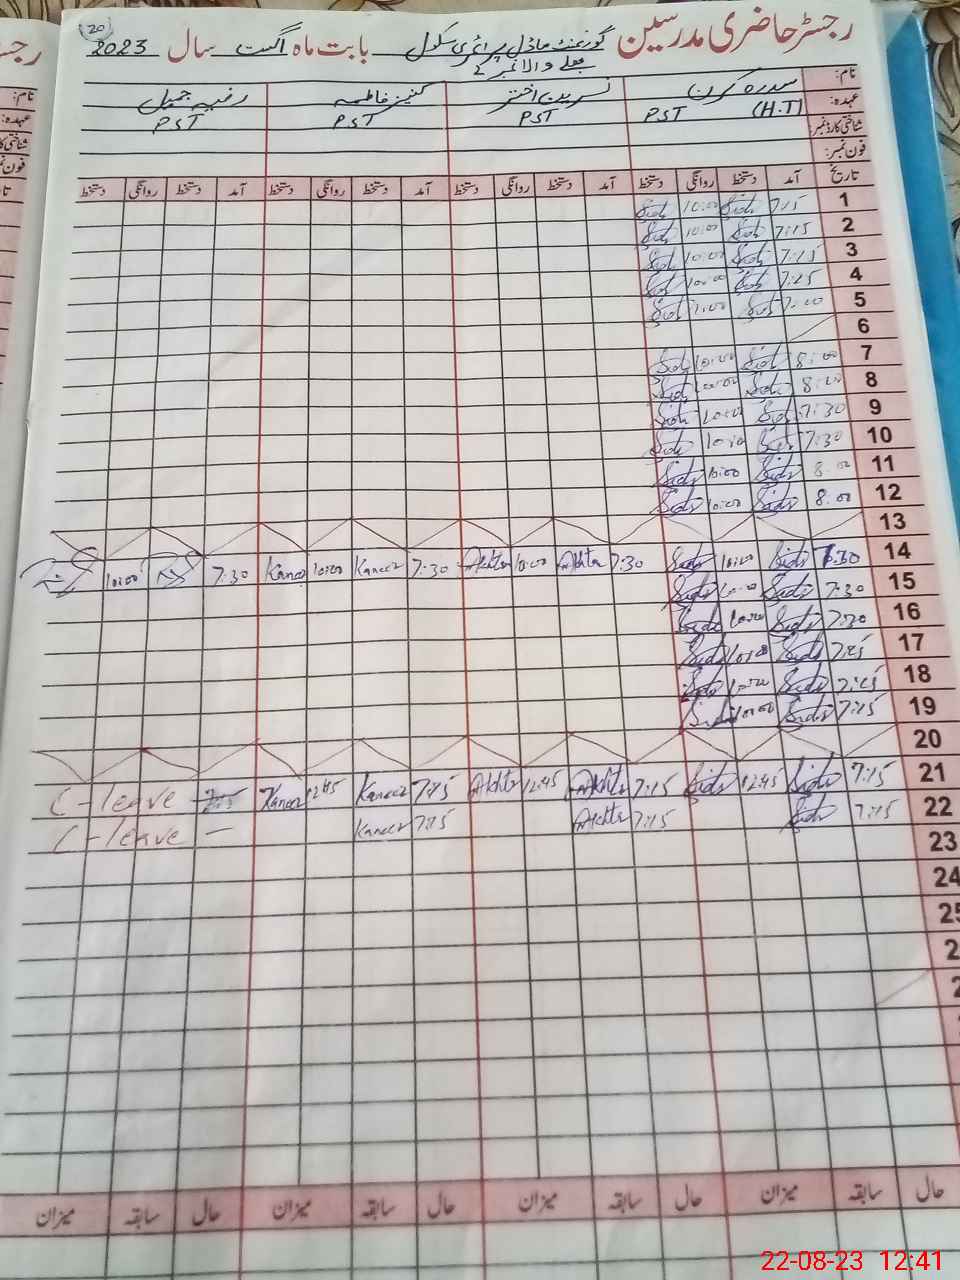 رجسٹر حاضری مدرسین گورنمنٹ ماڈل پرائمری سکول بابت ماہ اگست سال 2023 (20)
والا نمبر 2
نام: سدرہ کرن نسرین اختر کنیز فاطمہ رضیہ جمیل
عہدہ: (H.T) PST PST PST PST
شناختی کارڈ نمبر:
فون نمبر:
تاریخ آمد دستخط روانگی دستخط آمد دستخط روانگی دستخط آمد دستخط روانگی دستخط آمد دستخط روانگی دستخط
1 7:15 Sidr 10:00 Sidr
2 7:15 Sidr 10:00 Sidr
3 7:15 Sidr 10:00 Sidr
4 7:25 Sidr 10:00 Sidr
5 7:00 Sidr Sidr
6
7 8:00 Sidr 10:00 Sidr
8 8:00 Sidr 10:00 Sidr
9 7:30 Sidr 10:00 Sidr
10 7:30 Sidr 10:10 Sidr
11 8:00 Sidr 10:00 Sidr
12 8:00 Sidr 10:00 Sidr
13
14 7:30 Sidr 10:00 Sidr 7:30 Akhtr 10:00 Akhtr 7:30 Kaneez 10:00 Kaneez 7:30 10:00
15 7:30 Sidr 10:00 Sidr
16 7:30 Sidr 10:00 Sidr
17 7:25 Sidr 10:00 Sidr
18 7:25 Sidr 10:00 Sidr
19 7:15 Sidr 10:00 Sidr
20
21 7:15 Sidr 12:45 Sidr 7:15 Akhtr 12:45 Akhtr 7:15 Kaneez 12:45 Kaneez C-leave
22 7:15 Sidr 7:15 Akhtr 7:15 Kaneez — C-leave
23
24
25
2
2
حال سابقہ میزان حال سابقہ میزان حال سابقہ میزان حال سابقہ میزان
22-08-23 12:41